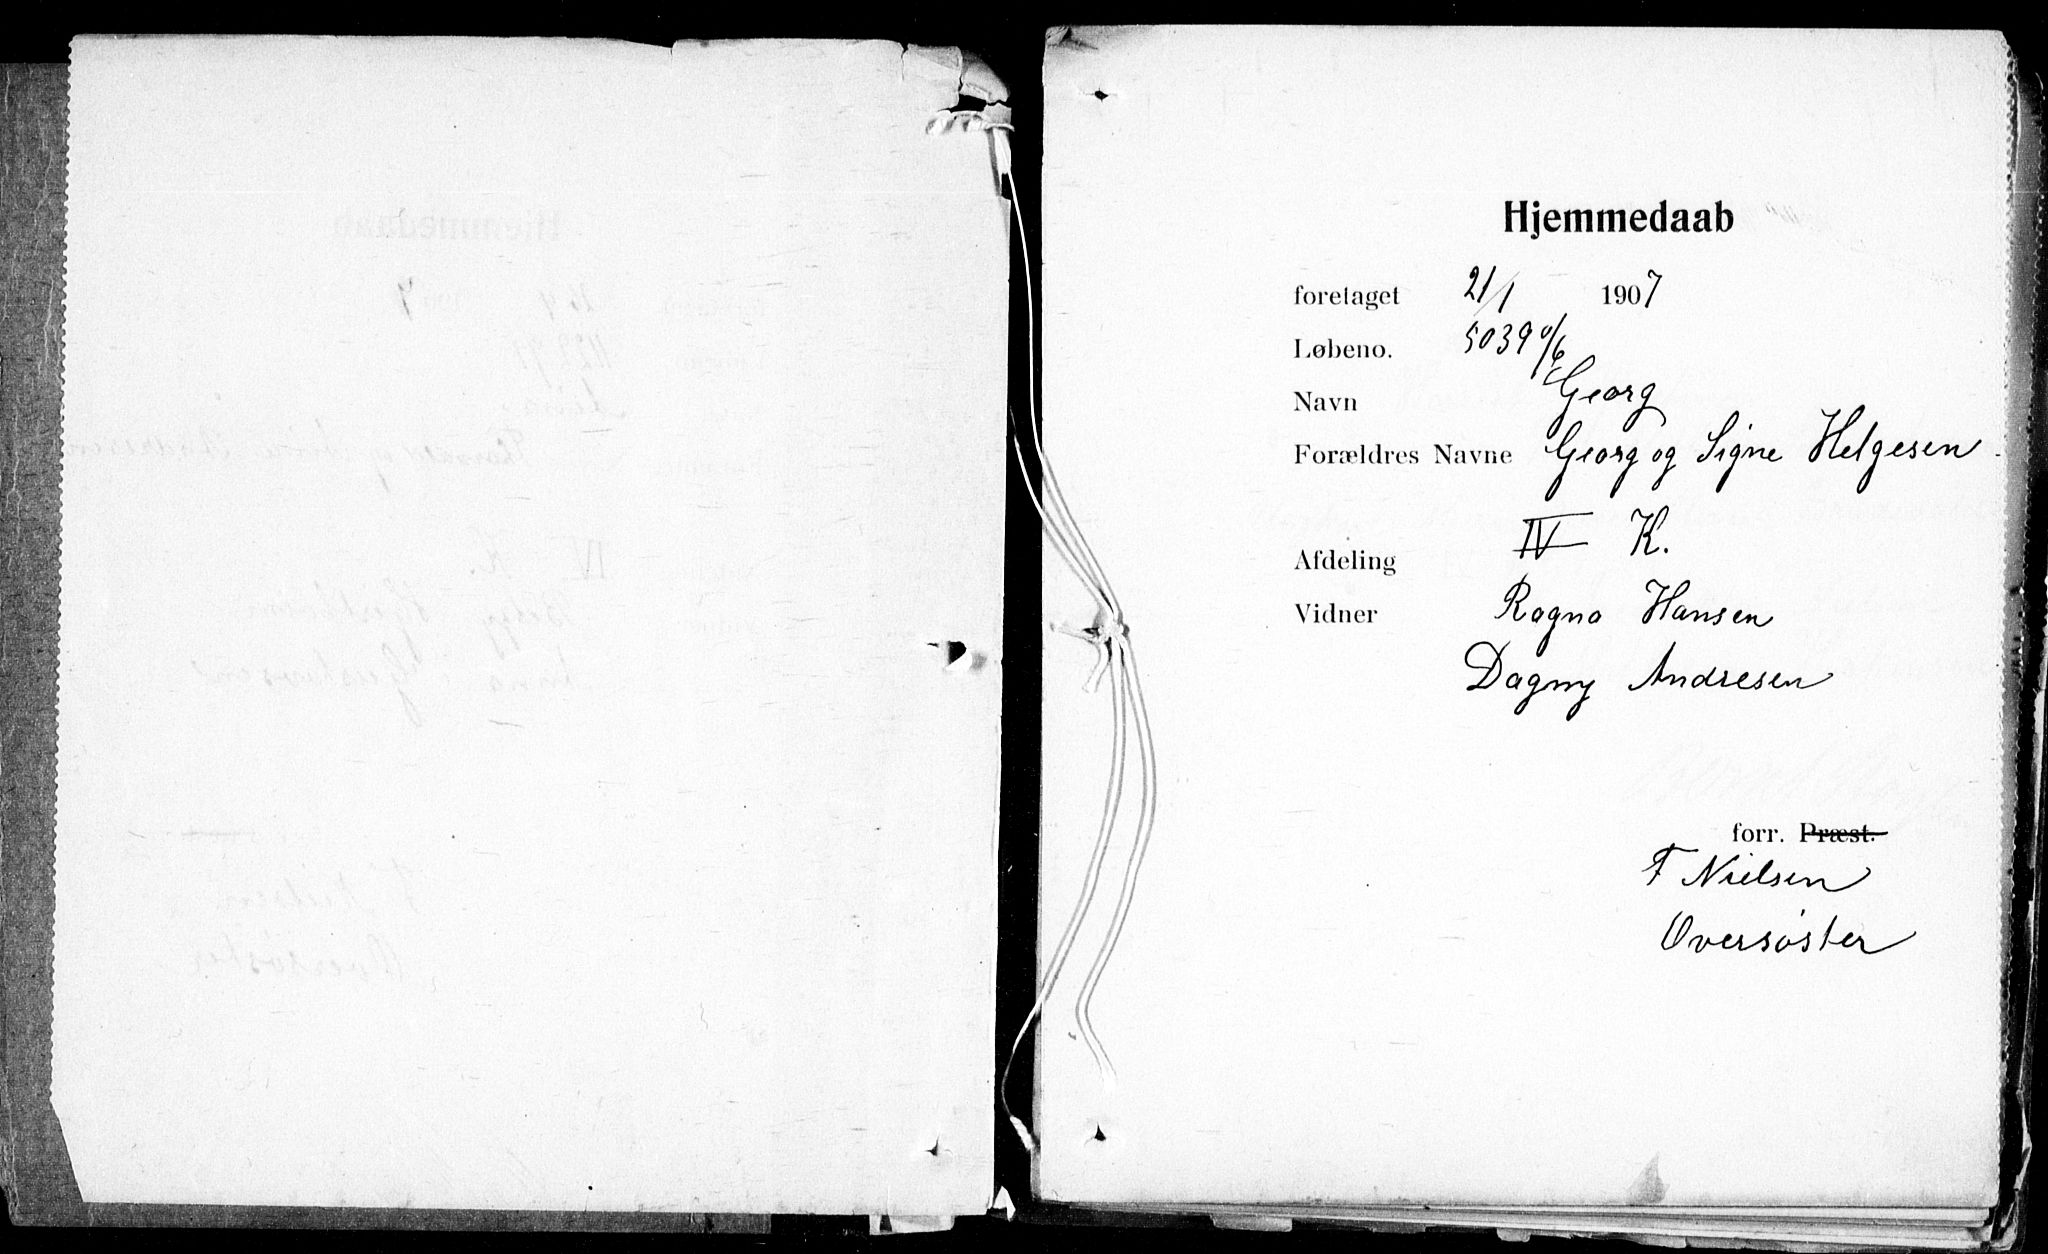 Hjemmedaab
foretaget 21/1 1907
Løbeno. 5039 0/6
Navn Georg
Forældres Navne Georg og Signe Helgesen.
Afdeling IV K.
Vidner Ragna Hansen
Dagny Andresen
forr. Præst.
F Nielsen
Oversøster